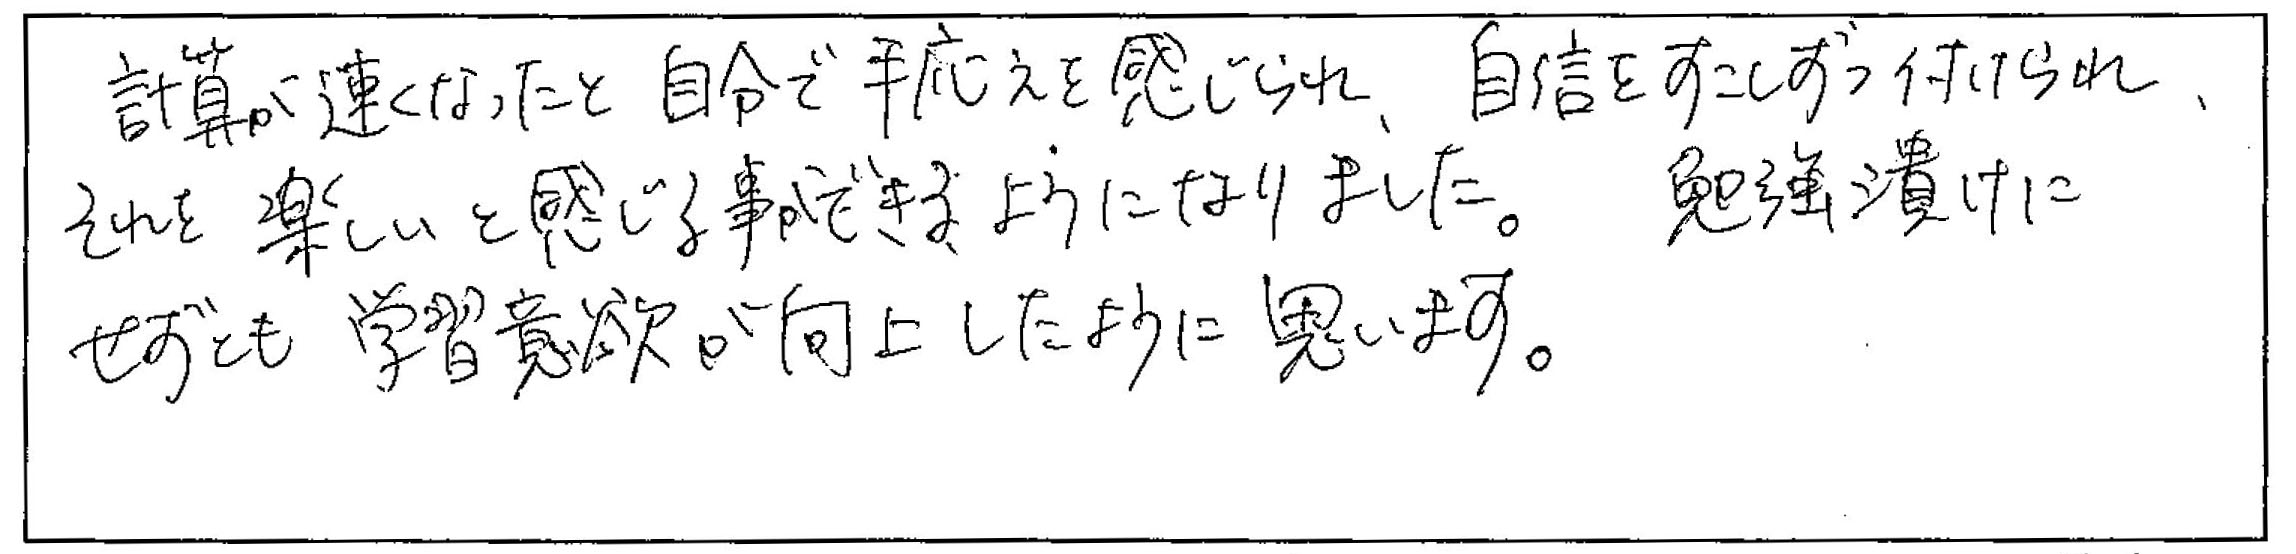 計算が速くなったと自分で手応えを感じられ、自信をすこしずつ付けられ、
それを楽しいと感じる事ができるようになりました。 勉強漬けに
せずとも学習意欲が向上したように思います。